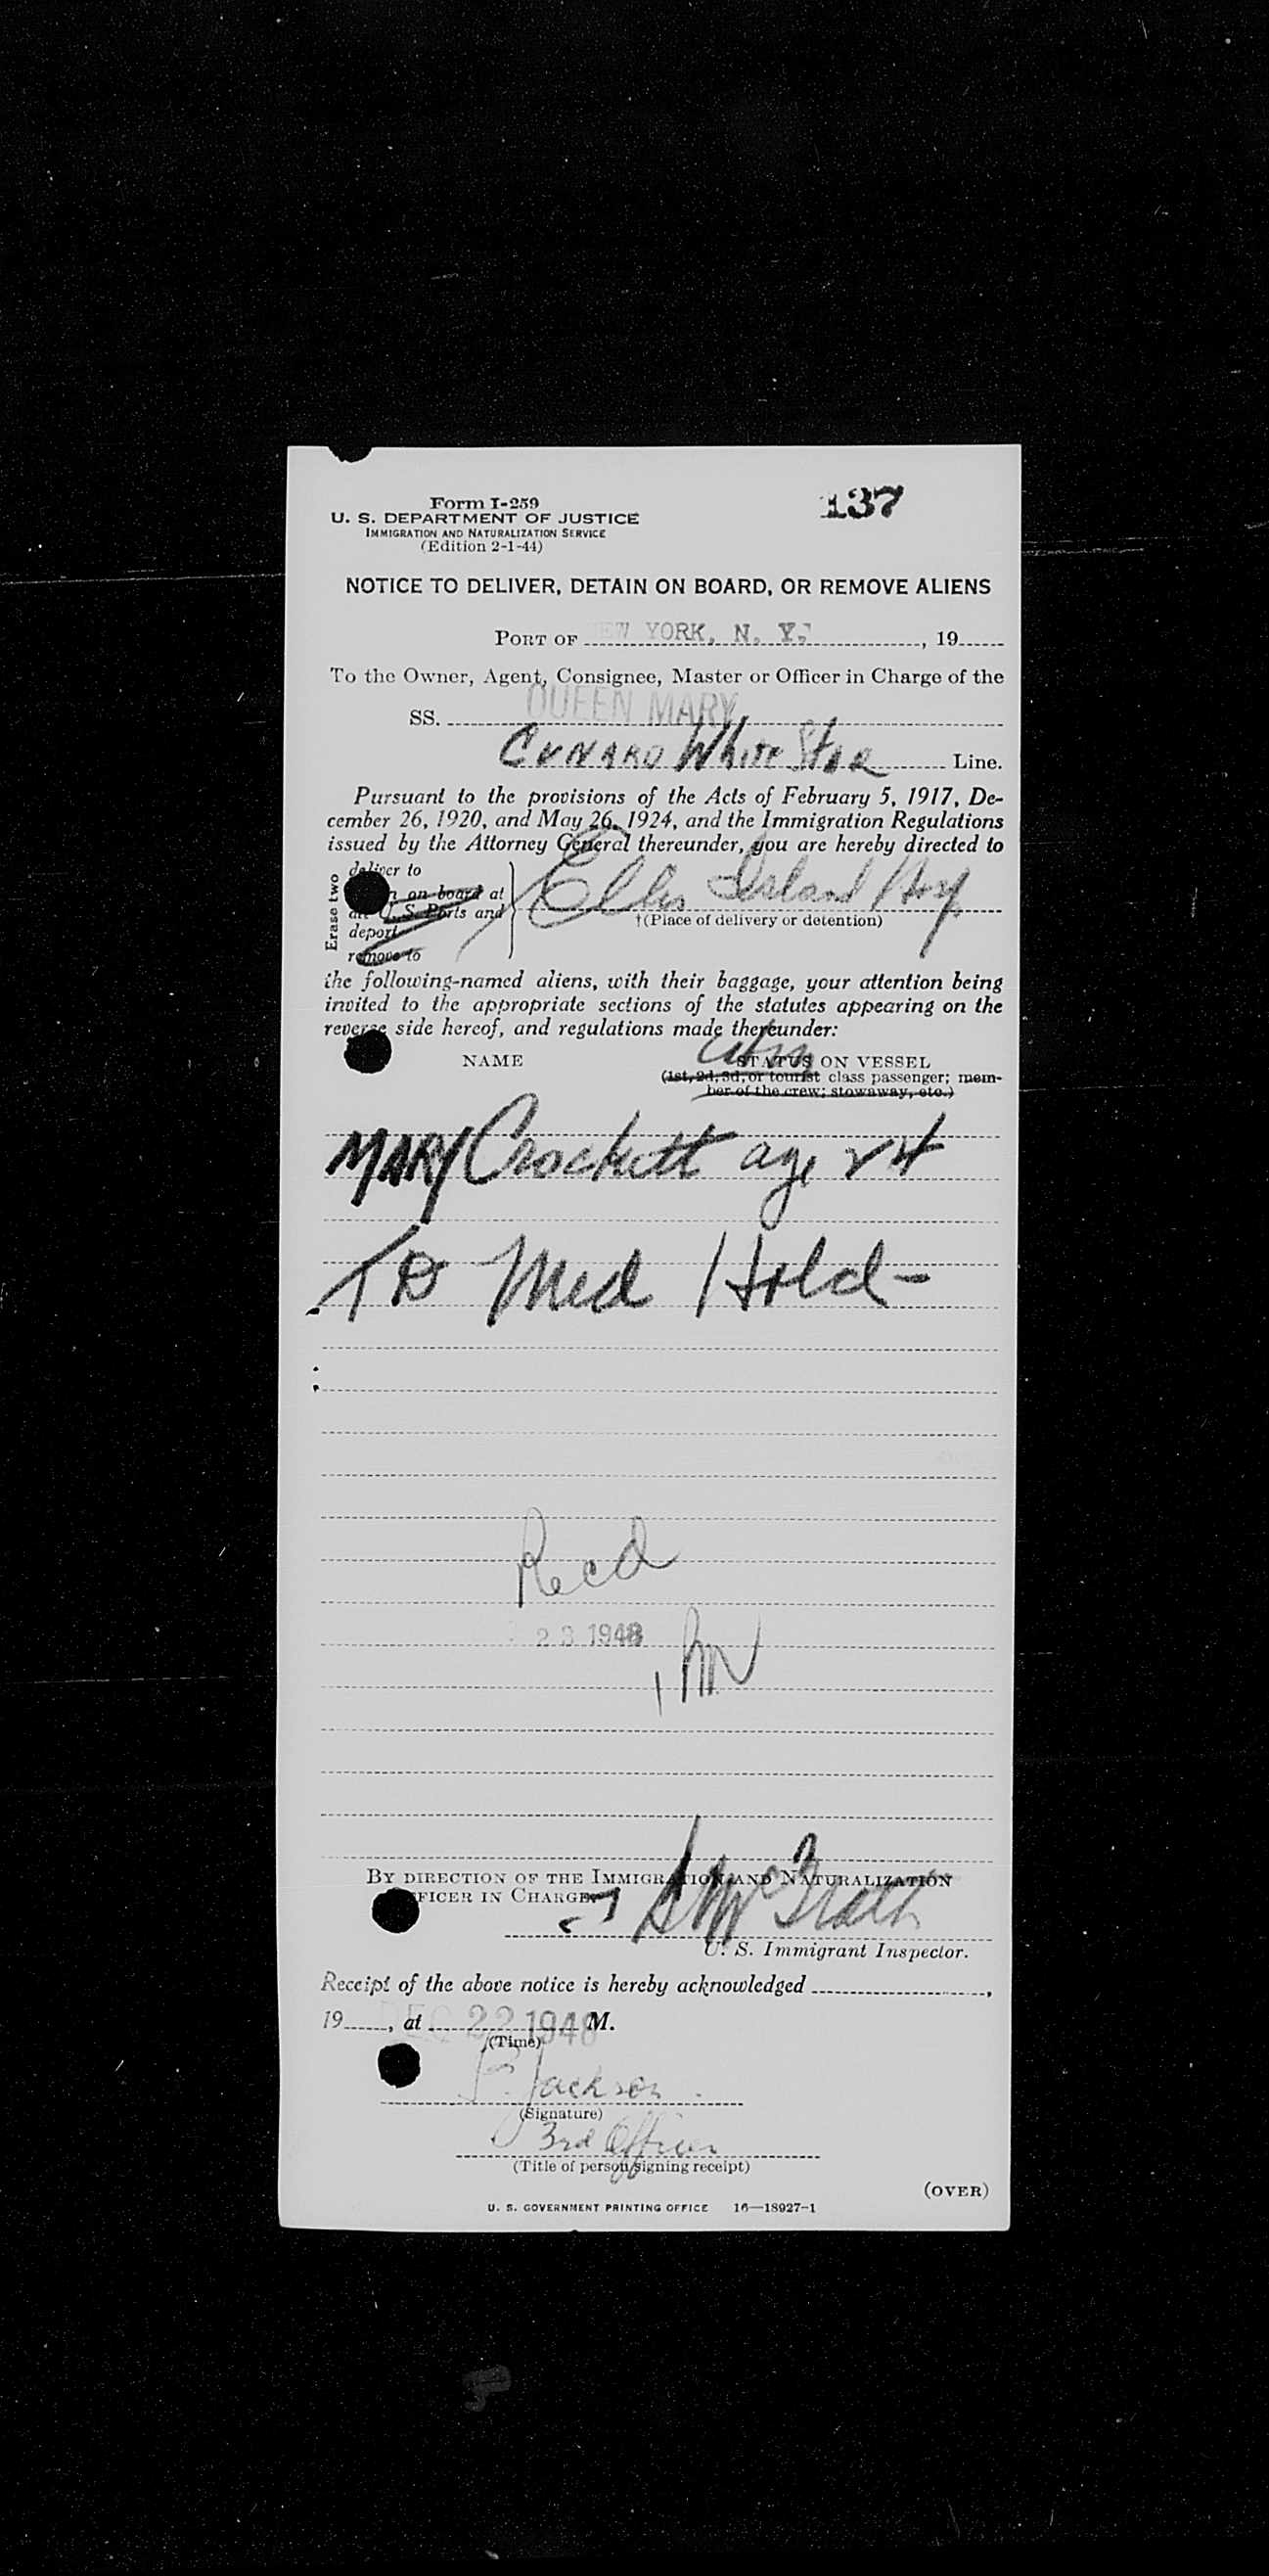 Form I-259
137
U. S. DEPARTMENT OF JUSTICE
IMMIGRATION AND NATURALIZATION SERVICE
(Edition 2-1-44)
NOTICE TO DELIVER, DETAIN ON BOARD, OR REMOVE ALIENS
PORT OF NEW YORK, N. Y., 19
To the Owner, Agent, Consignee, Master or Officer in Charge of the
SS. QUEEN MARY
CUNARD White Star Line.
Pursuant to the provisions of the Acts of February 5, 1917, De-
cember 26, 1920, and May 26, 1924, and the Immigration Regulations
issued by the Attorney General thereunder, you are hereby directed to
Erase two
deliver to
on board at
U. S. Ports and
deport
remove to
Ellis Island Hosp
†(Place of delivery or detention)
the following-named aliens, with their baggage, your attention being
invited to the appropriate sections of the statutes appearing on the
reverse side hereof, and regulations made thereunder:
NAME STATUS ON VESSEL
(1st, 2d, 3d, or tourist class passenger; mem-
ber of the crew; stowaway, etc.)
MARY Crockett age 24
TB Med Hold-
Recd
23 1948
BY DIRECTION OF THE IMMIGRATION AND NATURALIZATION
OFFICER IN CHARGE:
McGrath
U. S. Immigrant Inspector.
Receipt of the above notice is hereby acknowledged ,
19 , at DEC 22 1948 M.
(Time)
F. Jackson
(Signature)
3rd Officer
(Title of person signing receipt)
(OVER)
U. S. GOVERNMENT PRINTING OFFICE 16—18927-1